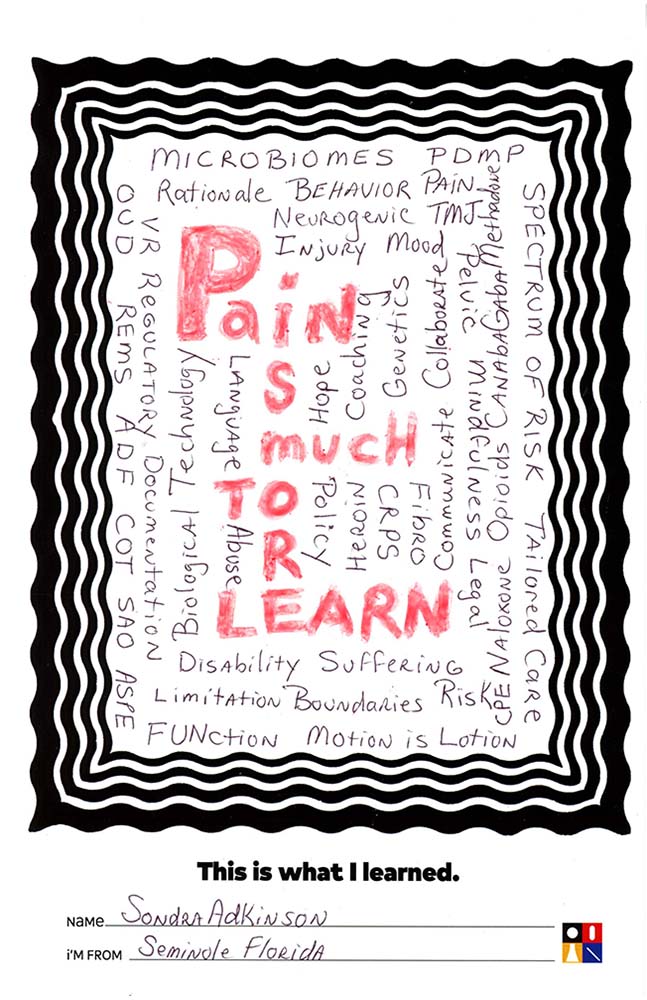 MICROBIOMES PDMP
Rationale BEHAVIOR PAIN
Neurogenic TMJ
Injury Mood
OUD REMS ADF COT SAO ASPE
VR REGULATORY Documentation
Biological Technology
Language Abuse
Hope Policy
Coaching HEROIN
Genetics CRPS
Fibro
Communicate Collaborate
Pelvic Mindfulness Legal
CPE NALOXONE Opioids CANABA GABA Methadone
SPECTRUM OF RISK TAILORED CARE
Pain
is
much
TO
MORE
LEARN
Disability SUFFERING
Limitation Boundaries Risk
FUNCTION MOTION is LOTION
This is what I learned.
Name SONDRA AdKINSON
i'M FROM Seminole FloridA